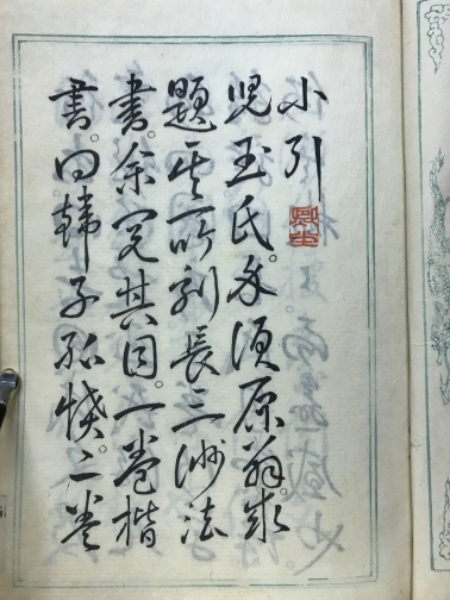 小引
児玉氏。須原翁。求
題其所刻長三洲法
書。余閲其目。一巻楷
書。曰韓子孤憤。二巻